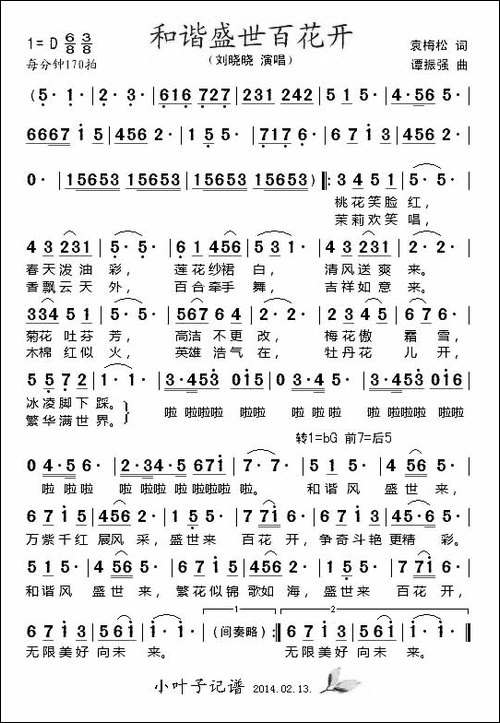 和谐盛世百花开
1=D 6/8 3/8
每分钟170拍
(刘晓晓 演唱)
袁梅松 词
谭振强 曲
(5· 5· | 2· 3· | 616 727 | 231 242 | 5· 5· |
6667 i5 | 456 2· | 1 5 5 | 717 6· | 6 7 i 3 |
0· | 15653 15653 | 15653 15653 ) ‖: 3 4 5 1 | 5· 5· |
桃花笑脸 红,
茉莉欢笑 唱,
4 3 231 | 5· 5· | 6 1 456 | 2· 2· | 3 4 5 1 | 2· 2· |
春天泼油 彩, 莲花纱裙 白, 清风送爽 来。
香飘云天 外, 百合牵手 舞, 吉祥如意 来。
334 5 1 | 5· 5· | 567 6 4 | 2· 2· | 3 4 5 i | 7 i 2 |
菊花 吐芬 芳, 高洁 不更 改, 梅花傲 霜 雪,
木棉 红似 火, 英雄 浩气 在, 牡丹花 儿 开,
5 5 7 2 | 1· 1· | 3·453 | 015 0 | 3·453 | 0 i 6 |
冰凌脚下 踩。
繁华满世 界。
啦 啦啦啦 啦啦 啦 啦啦啦 啦啦
转1=bG 前7=后5
0 4·5 6· | 2·34·5 671 | 7· 7· | 1 5 5· | 4 56 5· |
啦 啦 啦 啦 啦啦啦 啦啦啦 啦。 和谐风 盛世 来,
6 7 i 5 | 456 2· | 5· 5· | 2· 7i 6 | 6 7 i 3 | 45·6 5· |
万紫千红 展风 采, 盛世来 百花 开, 争奇斗艳 更精 彩。
1 5 5· | 456 5· | 6 7 i 5 | 456 2· | 5· 5· | 2 7i 6· |
和谐风 盛世 来, 繁花似锦 歌如 海, 盛世来 百花 开,
6 7 i 3 | 5 6i | i· i· | (间奏略) :‖ 6 7 i 3 | 5 6i | i· i· ‖
无限美好 向未 来。 无限美好 向未 来。
小叶子记谱 2014.02.13.